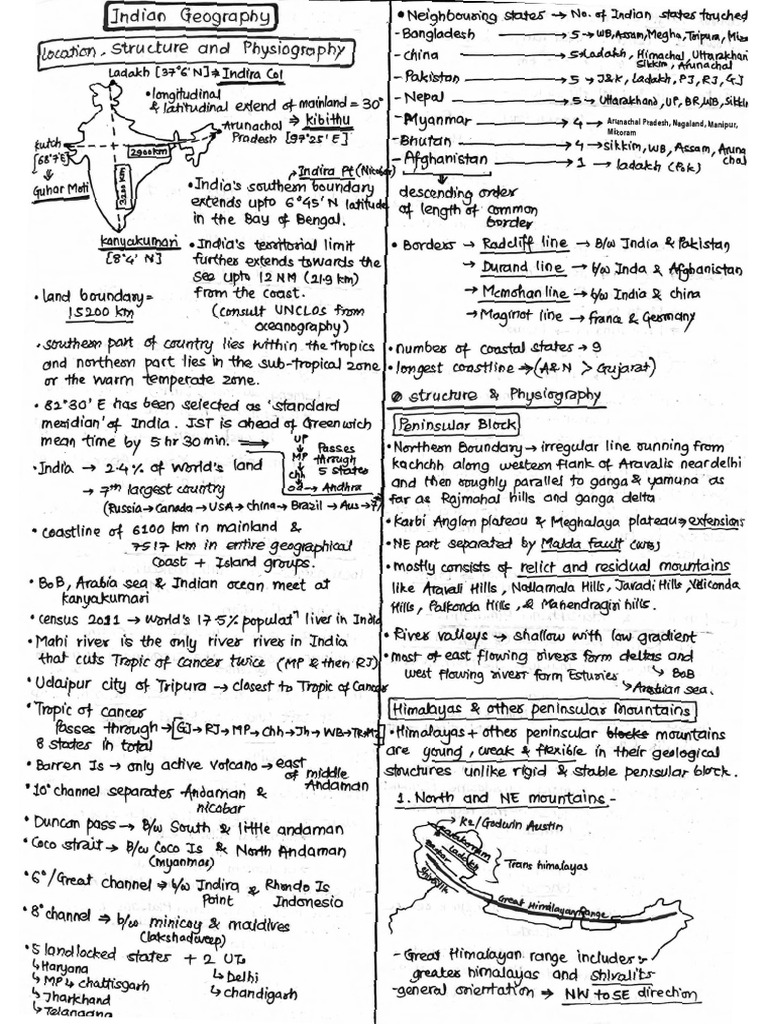 Indian Geography
Location, Structure and Physiography
Ladakh [37°6'N] → Indira Col
• longitudinal
& latitudinal extend of mainland = 30°
Arunachal → kibithu
Pradesh [97°25'E]
kutch
(68°7'E)
Guhar Moti
2900km
3200 km
kanyakumari
[8°4' N]
Indira Pt (Nicobar)
• India's southern boundary
extends upto 6°45' N latitude
in the Bay of Bengal.
• India's territorial limit
further extends towards the
sea upto 12 NM (21.9 km)
from the coast.
(consult UNCLOS from
oceanography)
• land boundary =
15200 km
• southern part of country lies within the tropics
and northern part lies in the sub-tropical zone
or the warm temperate zone.
• 82°30' E has been selected as 'standard
meridian' of India. IST is ahead of Greenwich
mean time by 5 hr 30 min. →
UP
MP
chh
Od → Andhra
Passes
through
5 states
• India → 2.4% of World's land
→ 7th largest country
(Russia→Canada→USA→China→Brazil→Aus→7)
• coastline of 6100 km in mainland &
7517 km in entire geographical
coast + Island groups.
• BoB, Arabia sea & Indian ocean meet at
kanyakumari
• census 2011 → World's 17.5% populatn lives in India
• Mahi river is the only river rives in India
that cuts Tropic of cancer twice (MP & then RJ)
• Udaipur city of Tripura → closest to Tropic of Cancer
• Tropic of cancer
Passes through →[GJ→RJ→MP→Chh→Jh→WB→TR→Mz]
8 states in total
• Barren Is → only active volcano → east
of middle
Andaman
• 10° channel separates Andaman &
nicobar
• Duncan pass → B/w South & little andaman
• Coco strait → B/w Coco Is & North Andaman
(myanmar)
• 6°/Great channel → b/w Indira & Rhondo Is
Point Indonesia
• 8° channel → b/w minicoy & maldives
(lakshadweep)
• 5 landlocked states + 2 UTs
↳ Haryana
↳ MP ↳ chattisgarh
↳ Jharkhand
↳ Telangana
↳ Delhi
↳ chandigarh
• Neighbouring states → No. of Indian states touched
- Bangladesh → 5 → WB, Assam, Megha, Tripura, Mizo
- China → 5 → Ladakh, Himachal, Uttarakhan
Sikkim, Arunachal
- Pakistan → 5 → J&K, Ladakh, PJ, RJ, GJ
- Nepal → 5 → Uttarakhand, UP, BR, WB, Sikki
- Myanmar → 4 → Arunachal Pradesh, Nagaland, Manipur,
Mizoram
- Bhutan → 4 → sikkim, WB, Assam, Aruna
chal
- Afghanistan → 1 → ladakh (Pok)
descending order
of length of common
border
• Borders → Radcliff line → B/w India & Pakistan
→ Durand line → b/w Inda & Afghanistan
→ Mcmohan line → b/w India & china
→ Maginot line → france & Germany
• number of coastal states → 9
• longest coastline → (A&N > Gujarat)
structure & Physiography
Peninsular Block
• Northern Boundary → irregular line running from
kachchh along western flank of Aravalis near delhi
and then roughly parallel to ganga & yamuna as
far as Rajmahal hills and ganga delta
• Karbi Anglon plateau & Meghalaya plateau → extensions
• NE part separated by Malda fault (WB)
• mostly consists of relict and residual mountains
like Aravali Hills, Nallamala Hills, Javadi Hills, Veliconda
Hills, Palkonda Hills, & Mahendragiri hills.
• River valleys → shallow with low gradient
• most of east flowing rivers form deltas and
↳ BoB
west flowing rivers form Esturies
↳ Arabian sea.
Himalayas & other peninsular Mountains
• Himalayas + other peninsular blocks mountains
are young, weak & flexible in their geological
structures unlike rigid & stable penisular block.
1. North and NE mountains -
K2/Godwin Austin
karakoram
ladakh
Zaskar
Shivalik
Trans himalayas
Great Himalayan Range
- Great Himalayan range includes →
greater himalayas and shivaliks
- general orientation → NW to SE direction